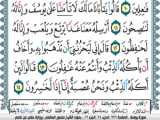 فَـٰعِلِينَ ١٠ قَالُوا۟ يَـٰٓأَبَانَا مَا لَكَ لَا تَأْمَ۫نَّا عَلَىٰ يُوسُفَ وَإِنَّا لَهُۥ
لَنَـٰصِحُونَ ١١ أَرْسِلْهُ مَعَنَا غَدًا يَرْتَعْ وَيَلْعَبْ وَإِنَّا لَهُۥ
لَحَـٰفِظُونَ ١٢ قَالَ إِنِّى لَيَحْزُنُنِىٓ أَن تَذْهَبُوا۟ بِهِۦ وَأَخَافُ أَن
يَأْكُلَهُ ٱلذِّئْبُ وَأَنتُمْ عَنْهُ غَـٰفِلُونَ ١٣ قَالُوا۟ لَئِنْ
أَكَلَهُ ٱلذِّئْبُ وَنَحْنُ عُصْبَةٌ إِنَّآ إِذًا لَّخَـٰسِرُونَ ١٤